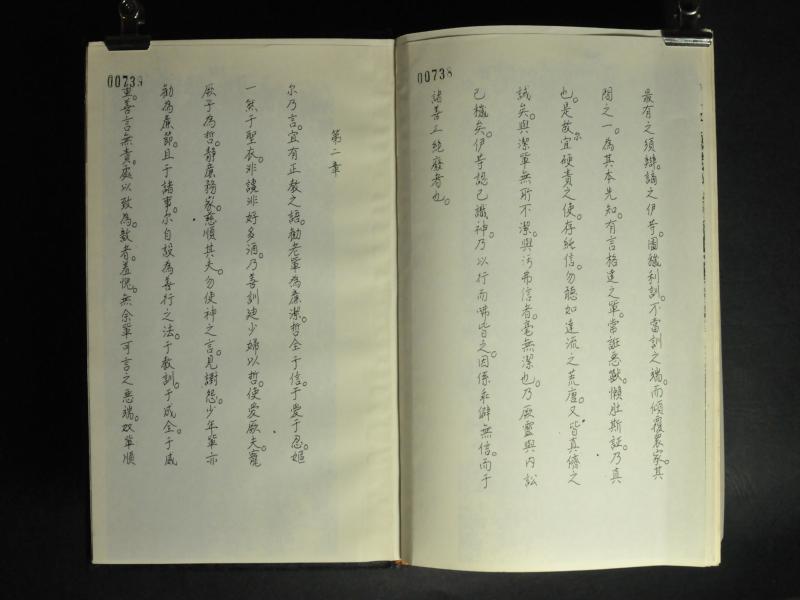 00738
最有之須辯謫之伊等圖穢利訓。不當訓之端。而傾覆衆家。其
間之一為其本先知。有言格達之輩。常誑惡獸。懶肚斯証乃真
也。是故宜硬責之使存純信。勿聽如達流之荒唐。又皆真儕之
誡矣。與潔輩無所不潔。與污弗信者。毫無潔也。乃厥靈與內訟
已穢矣。伊等認己識神。乃以行而咈皆之。因係乖僻無信。而于
諸善工絕廢者也。
00738
第二章
尔乃言。宜有正教之語。勸老輩為廉潔哲全于信。于愛于忍。嫗
一然于聖衣。非讒非好多酒。乃善訓廸少婦以哲。使愛厥夫。寵
厥子為哲。靜廉務家。慈順其夫。勿使神之言。見謝怨少年輩亦
勸為廉節。且于諸事。尔自設為善行之法。于教訓。于成全于威
重。善言無責處以致為。敖者。羞愧。無余輩可言之惡端。奴輩順